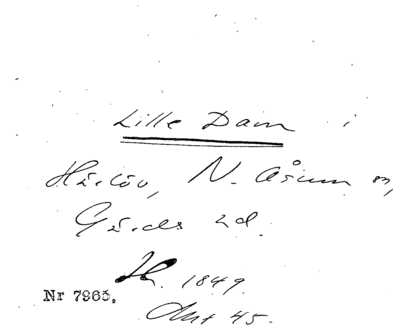 Lille Dam i
Härlöv, N. Åsum sn,
Gärds hd.
1849.
Nr 7965.
Ant 45.